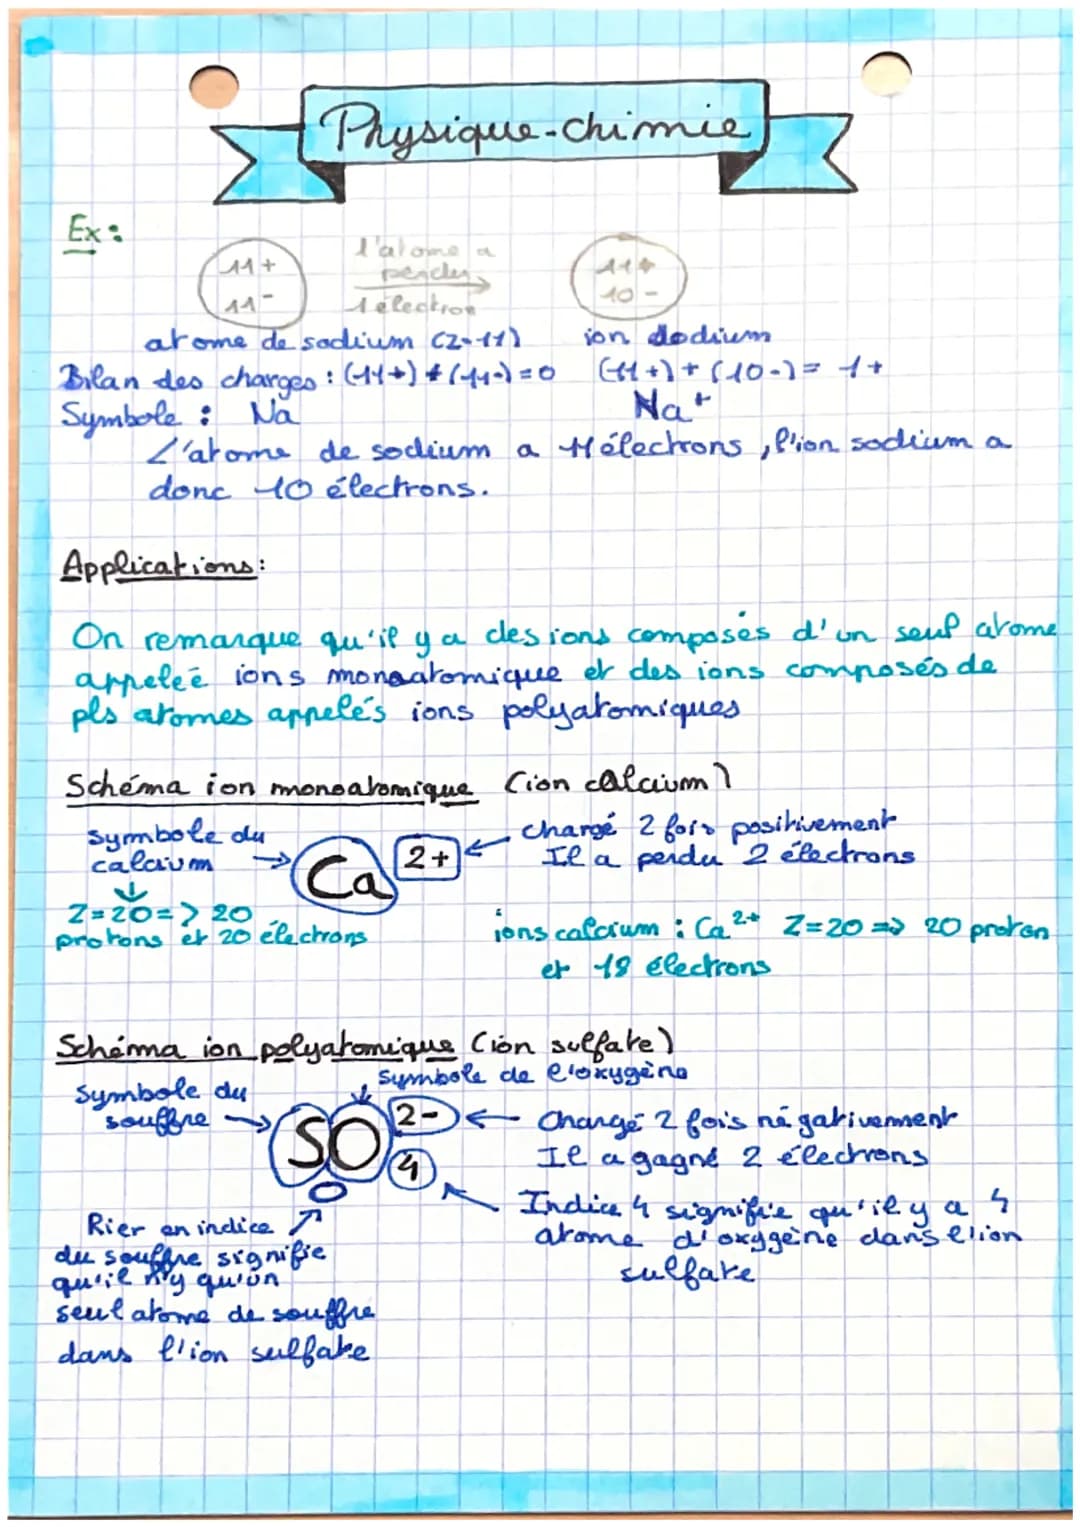 Physique-chimie
Ex:
11+
11-
l'atome a
perdu
1 électron
11+
10-
atome de sodium (Z=11) ion sodium
Bilan des charges : (11+) + (11-) = 0 (11+) + (10-) = 1+
Symbole : Na Na+
L'atome de sodium a 11 électrons, l'ion sodium a
donc 10 électrons.
Applications:
On remarque qu'il y a des ions composés d'un seul atome
appeleé ions monoatomique et des ions composés de
pls atomes appelés ions polyatomiques
Schéma ion monoatomique (ion calcium)
symbole du
calcium
Ca 2+
chargé 2 fois positivement
Il a perdu 2 électrons
Z=20=> 20
protons et 20 électrons
ions calcium : Ca 2+ Z=20 => 20 proton
et 18 électrons
Schéma ion polyatomique (ion sulfate)
Symbole de l'oxygène
Symbole du
souffre
SO 2- 4
Chargé 2 fois négativement
Il a gagné 2 électrons
Indice 4 signifie qu'il y a 4
atome d'oxygène dans l'ion
sulfate
Rier en indice
du souffre signifie
qu'il n'y qu'un
seul atome de souffre
dans l'ion sulfate